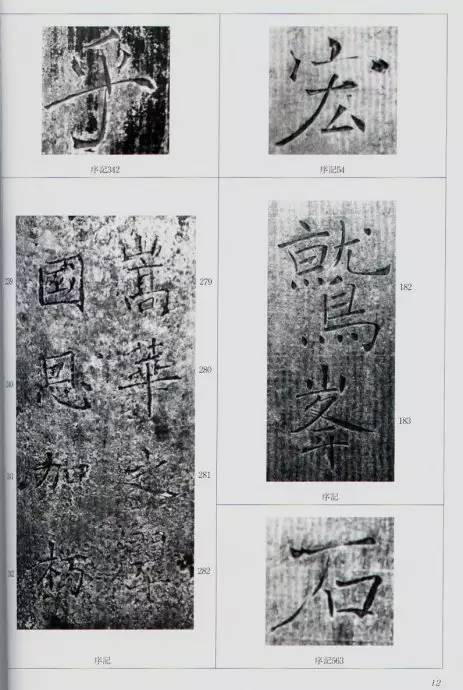 乎
序記342
宏
序記54
嵩華之翠
279
280
281
282
國恩加朽
序記
鷲峯
182
183
序記
石
序記563
12